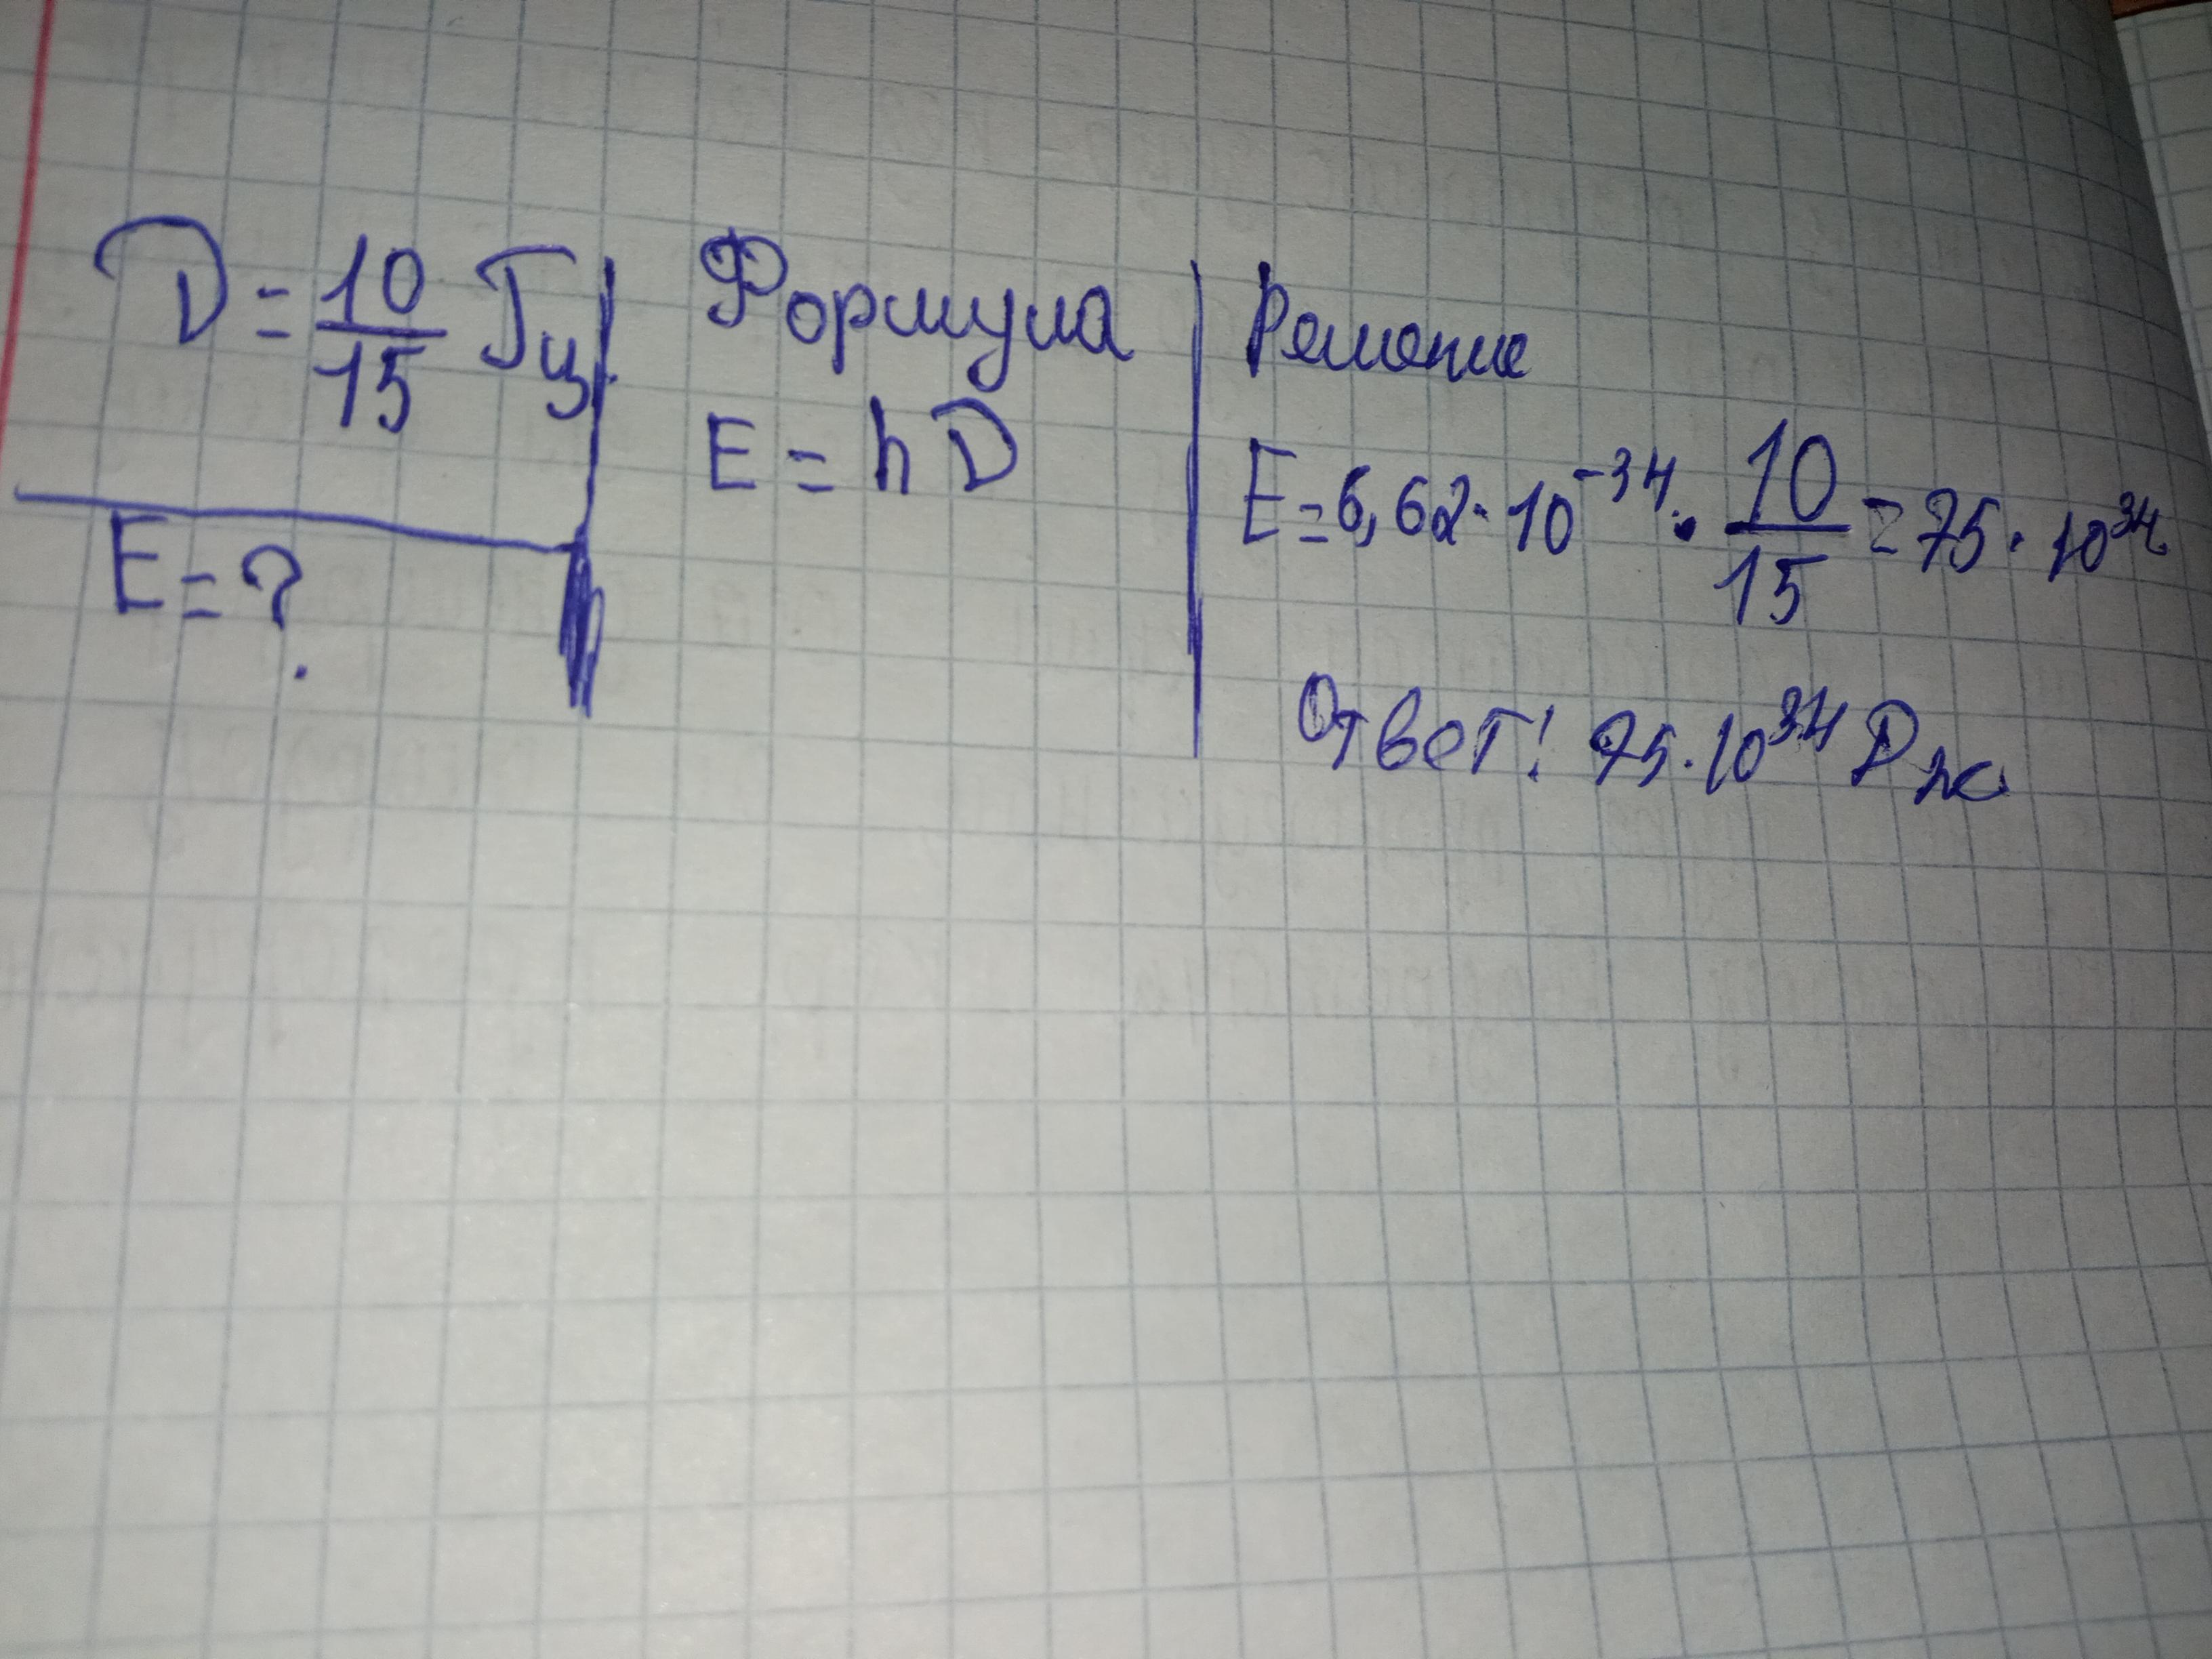 D = 10/15 Гц
E = ?
Формула
E = hD
Решение
E = 6,62 · 10⁻³⁴ · 10/15 = 75 · 10³⁴
Ответ! 75 · 10³⁴ Дж